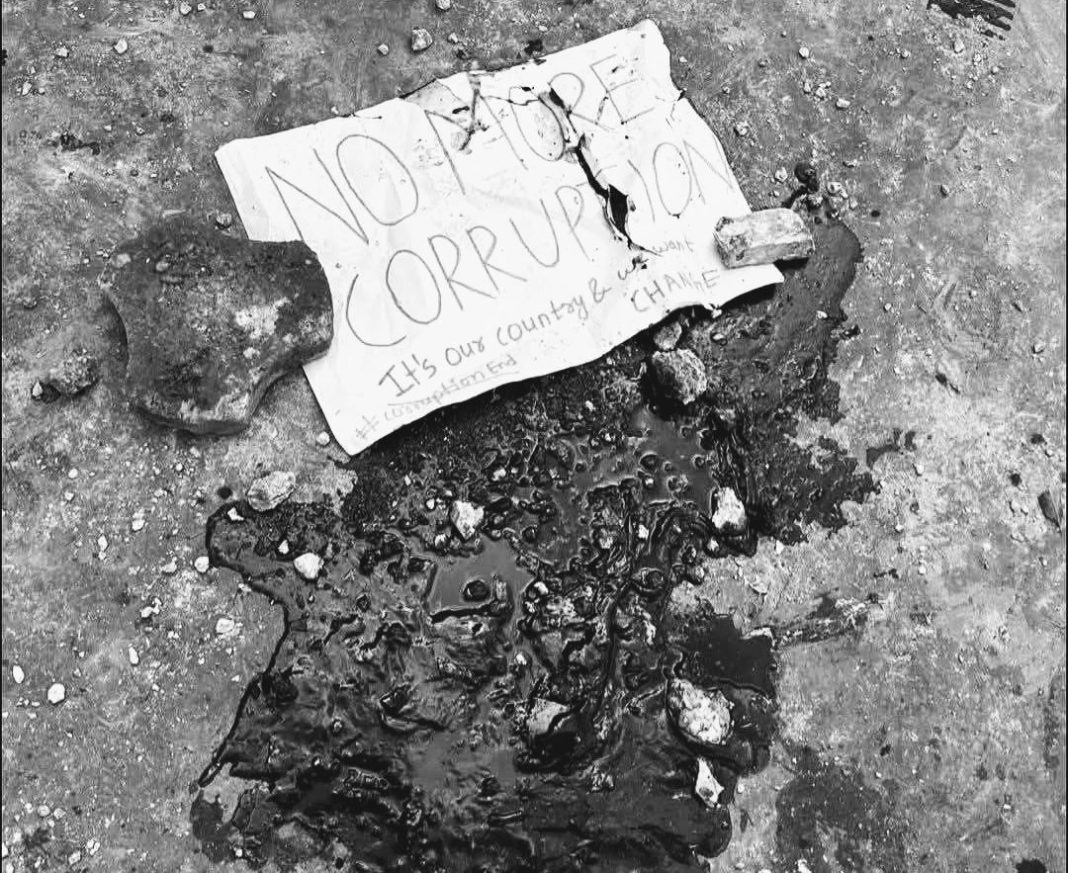 NO MORE
CORRUPTION
It's our country & we want
CHANGE
#corruption End